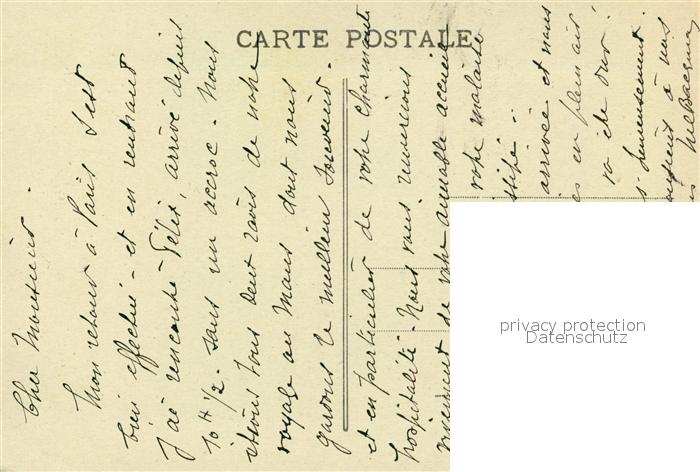 CARTE POSTALE
Cher Monsieur.
Mon retour à Paris s'est
bien effectué - et en rentrant
j'ai rencontré Félix, arrivé depuis
10 H 1/2. sans un accroc - Nous
étions tous deux ravis de notre
voyage au Mans dont nous
gardons le meilleur souvenir.
et en particulier de votre charmante
hospitalité - Nous vous remercions
vivement de votre aimable accueil
votre malaise
arrivée et vous
en plein air
été dur.
heureusement
à vous
privacy protection
Datenschutz